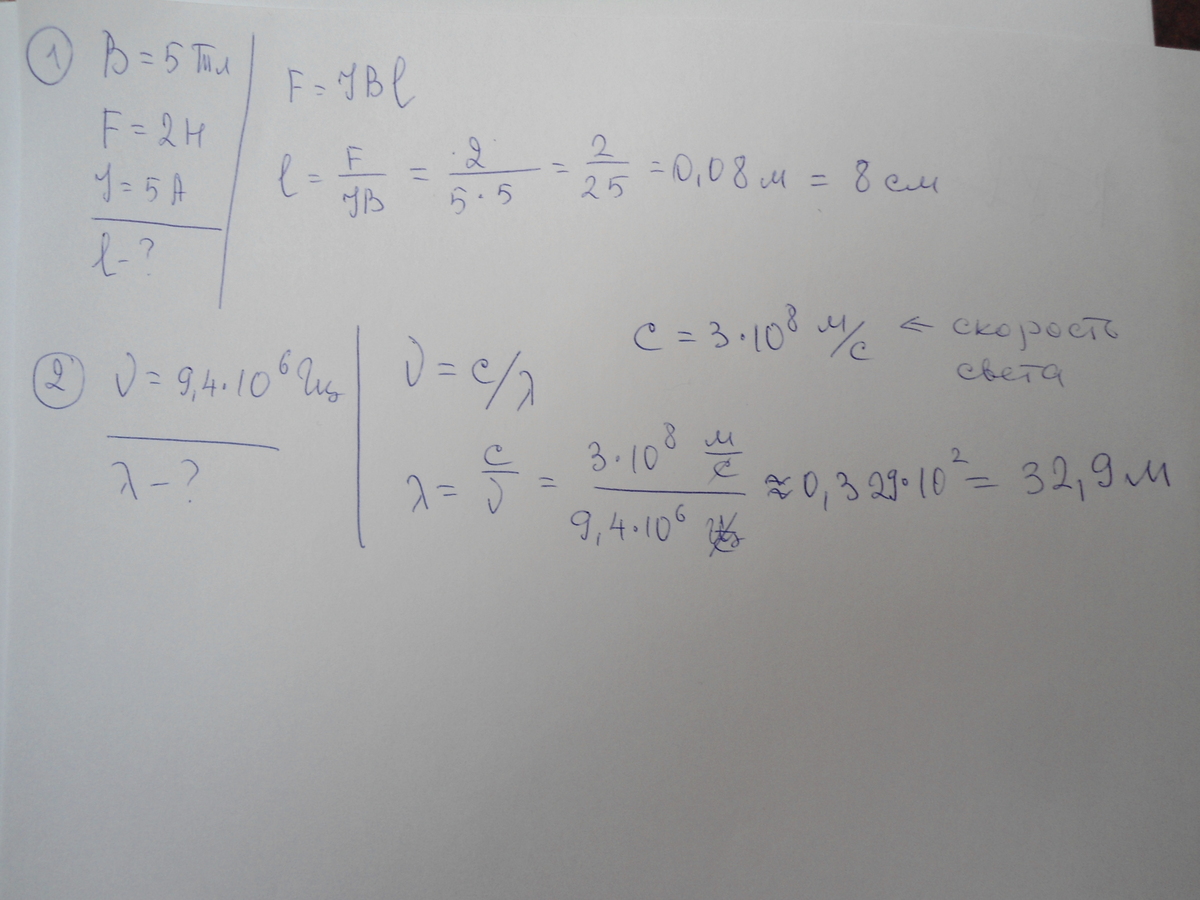 1 B = 5 Тл
F = 2 Н
J = 5 А
l - ?
F = JBl
l = F/JB = 2/5·5 = 2/25 = 0,08 м = 8 см
2 ν = 9,4·10⁶ Гц
λ - ?
ν = c/λ
c = 3·10⁸ м/с ← скорость
света
λ = c/ν = 3·10⁸ м/с / 9,4·10⁶ ≈ 0,329·10² = 32,9 м